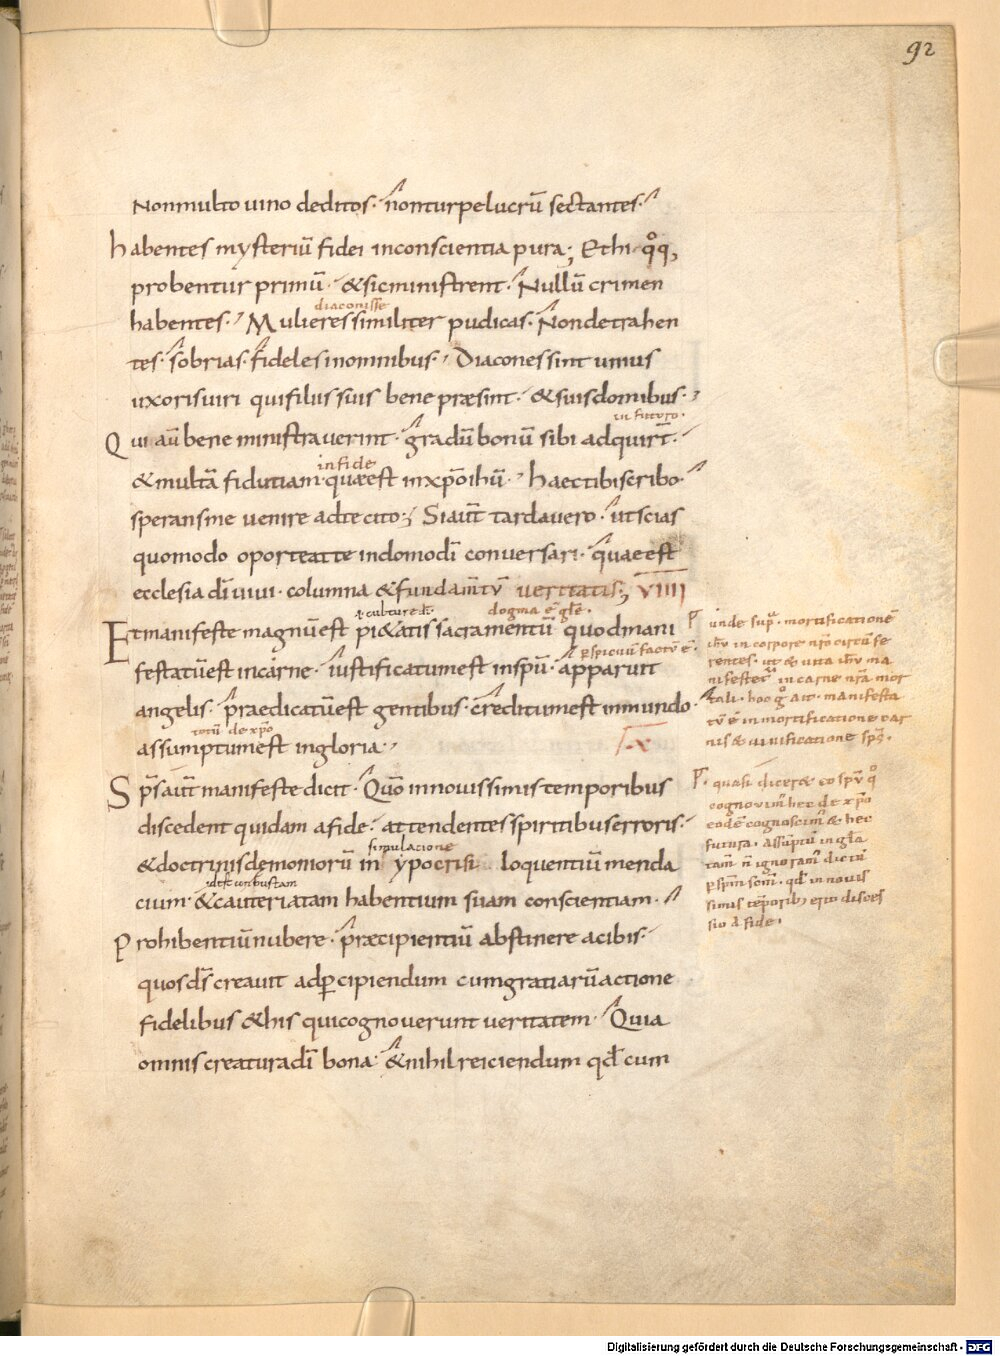 92
Non multo uino deditos· non turpe lucrũ sectantes·
habentes mysteriũ fidei in conscientia pura; Et hi q̊q,
probentur primũ· & sic ministrent· Nullũ crimen
diaconisse
habentes· Mulieres similiter pudicas· Non detrahen
tes· sobrias· fideles in omnibus· Diacones sint unius
uxoris uiri qui filiis suis bene præsint· & suis domibus·
in futuro·
Qui aũ bene ministrauerint· gradũ bonũ sibi adquirt̃·
in fide
& multã fidutiam· quæ est in xp̃o ihũ· Haec tibi scribo·
sperans me uenire ad te cito; Si aut̃ tardauero· ut scias
quomodo oporteat te in domo dĩ conuersari· quae est
ecclesia dĩ uiui· columna & fundam̃tũ ueritatis; VIIII
culture dĩ dogma ẽ gl̃e·
Et manifeste magnũ est pi&atis sacramentũ quod mani
pspicuũ factũ ẽ·
festatũ est in carne· iustificatum est in sp̃u· apparuit
angelis· praedicatũ est gentibus· creditum est in mundo·
totũ de xp̃o
assumptum est in gloria· X
Sp̃s aut̃ manifeste dicit· Quõ in nouissimis temporibus
discedent quidam a fide· attendentes spiritibus erroris·
simulacione
& doctrinis demoniorũ in ypocrisi loquentiũ menda
combustam
cium· & cauteriatam habentium suam conscientiam·
Prohibentiũ nubere· præcipientiũ abstinere a cibis·
quos ds̃ creauit ad p̱cipiendum cum gratiarũ actione
fidelibus & his qui cognouerunt ueritatem· Quia
omnis creatura dĩ bona· & nihil reiciendum qđ cum
unde sup̃· mortificationẽ
ihũ in corpore nr̃o circũ fe
rentes· ut & uita ihũ ma
nifestet̃ in carne nr̃a mor
tali· hoc g̊ ait· manifesta
tũ ẽ in mortificatione car
nis & uiuificatione sp̃s·
quasi dicer& eo sp̃u q̊
cognouim̃ hec de xp̃o
eodẽ cognoscim̃ & hec
futura· Assũptũ in gl̃a
tam̃ ñ ignoram̃ dicim̃
p sp̃m sc̃m· qđ in nouis
simis tẽporib; erit disces
sio a fide·
Digitalisierung gefördert durch die Deutsche Forschungsgemeinschaft · DFG